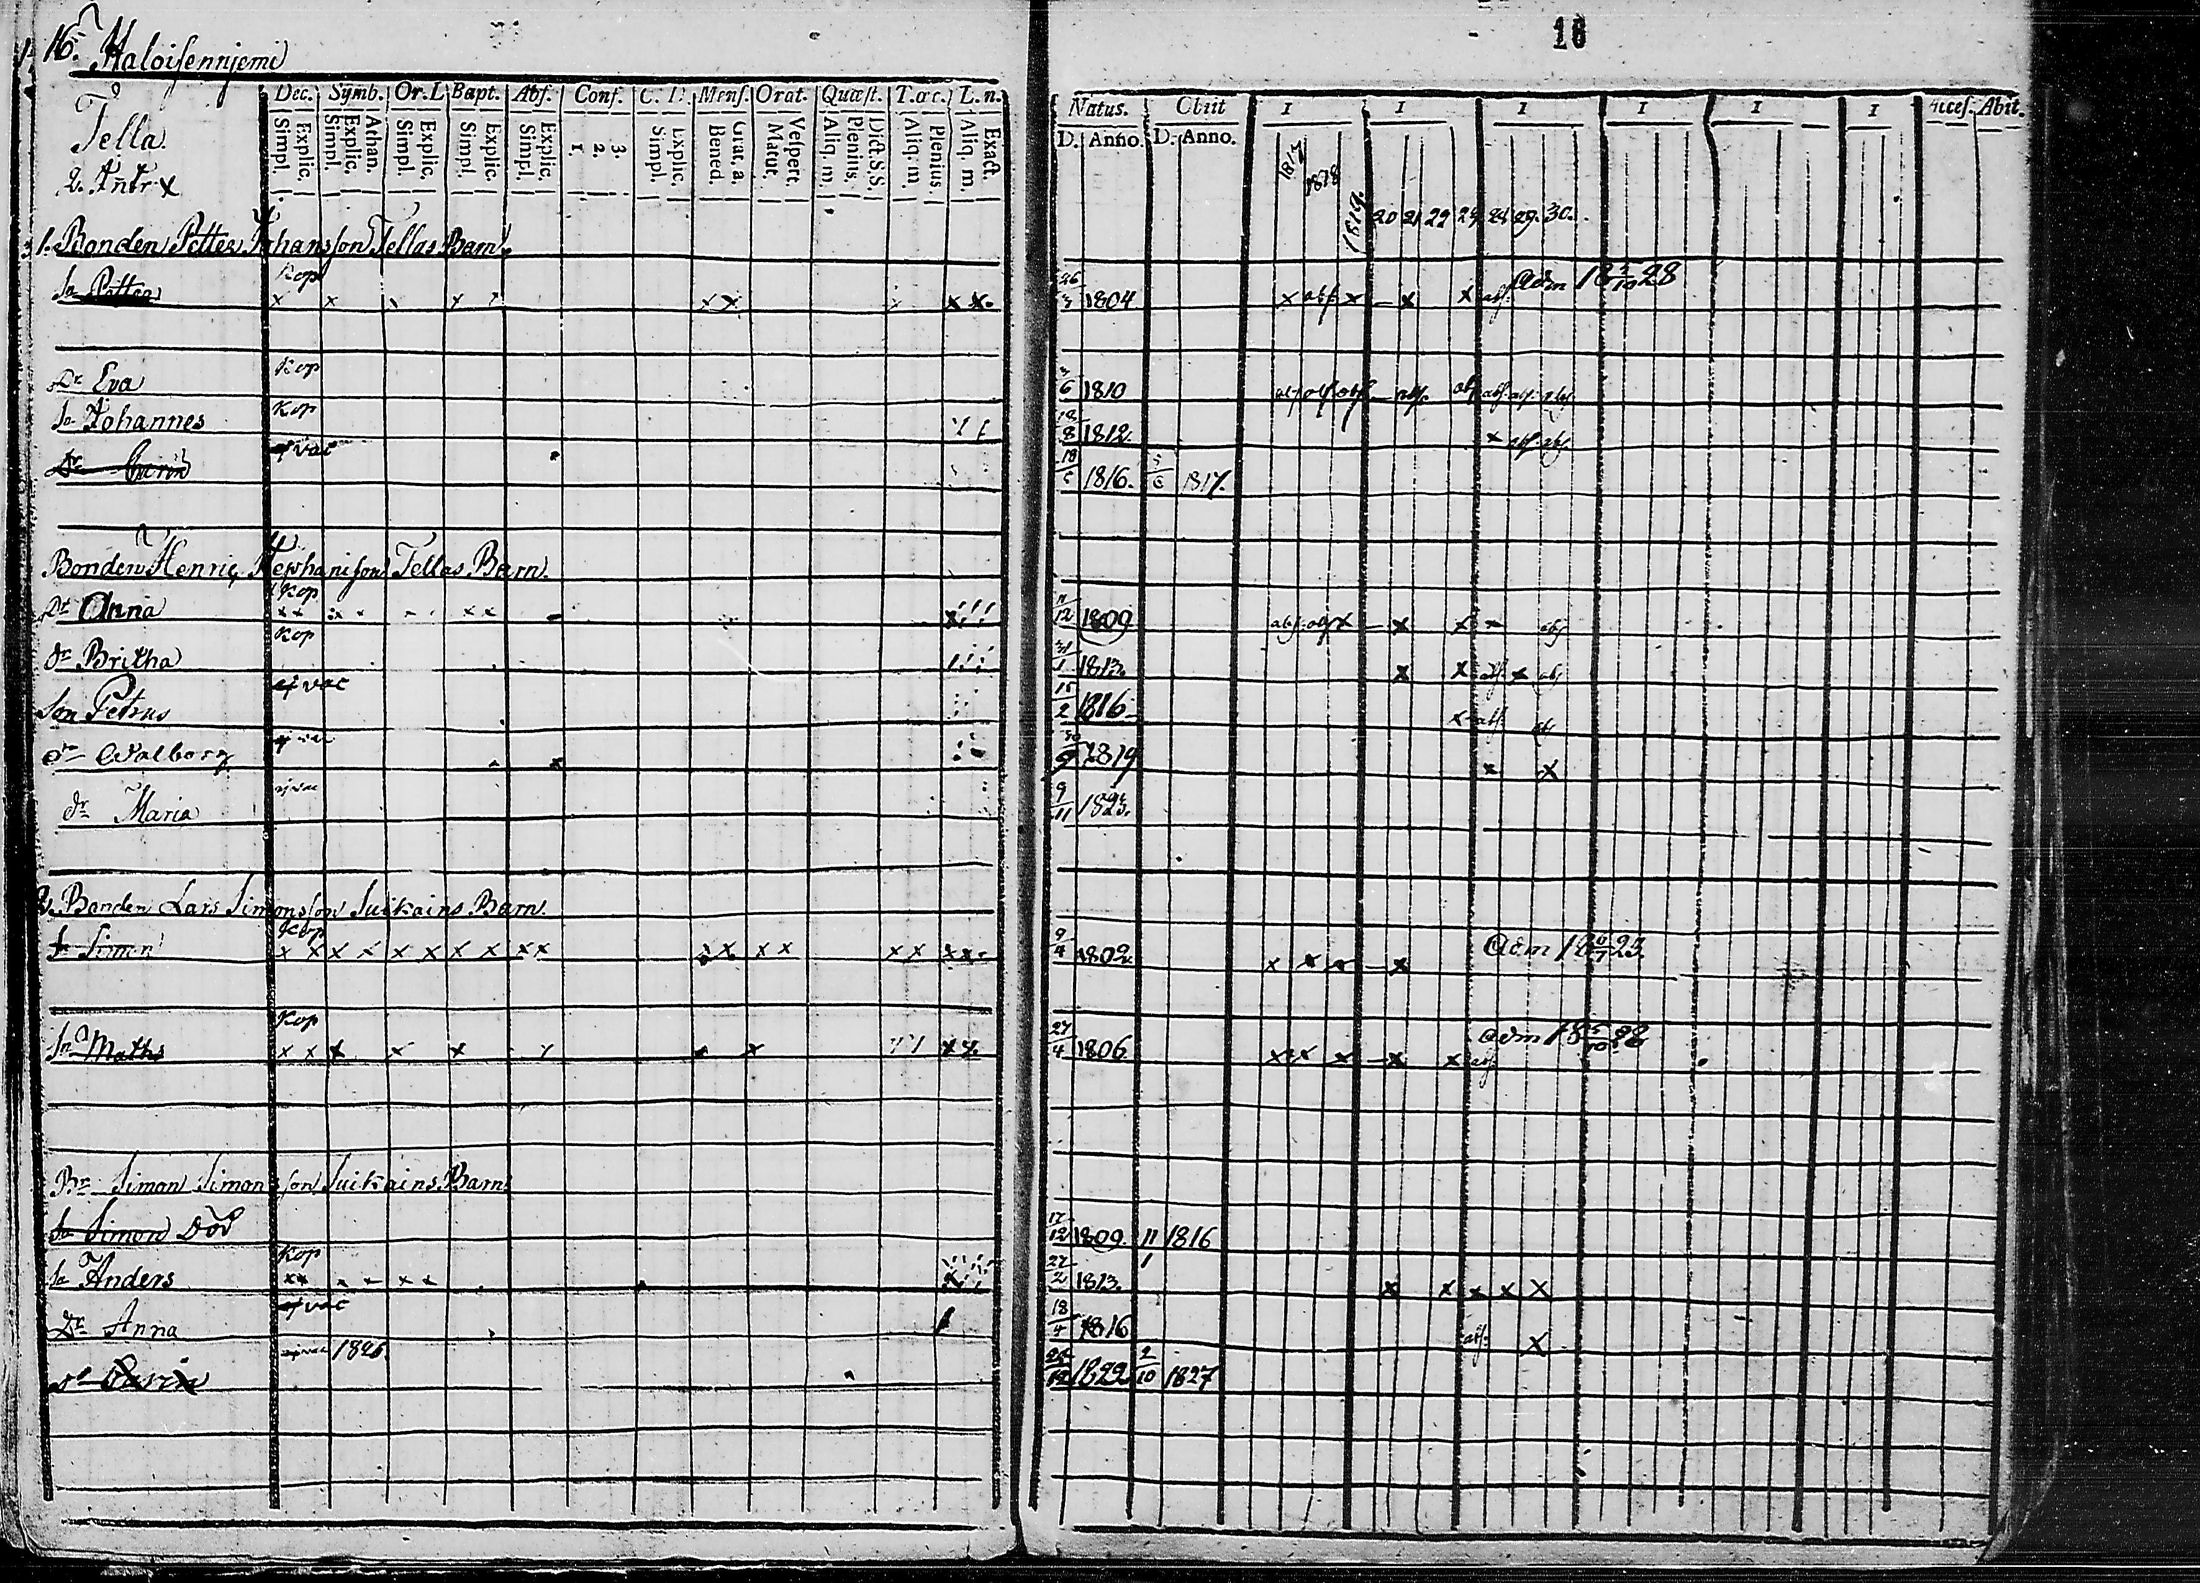 16. Haloisenniemi
18
Dec. Symb. Or. L Bapt. Abs. Conf. C. D. Mens. Orat. Quæst. T. œc. L. n.
Natus. Obiit I I I I I I Acces. Abit.
Explic. Simpl. Athan. Explic. Simpl. Explic. Simpl. Explic. Simpl. Explic. Simpl. 3. 2. 1. Explic. Simpl. Grat. a. Bened. Vespert. Matut. Dict. S. S. Plenius. Aliq. m. Plenius. Aliq. m. Exact. Aliq. m.
D. Anno D. Anno.
Tella
2. Antr x
1817 1818 1819 20 21 22 30.
1. Bonden Petter Johansson Tellas Barn
Sn Petter Kop x x x x x x x x x 26/3 1804 x abs x – x x abs adm 18 28
Dr Eva Kop 6 1810 abs abs abs – abs. abs abs abs abs
Sn Johannes Kop 18/8 1812. x abs abs
Dr Carin ej vac 18 1816. 5/6 1817.
Bonden Henric Tellas Barn.
Dr Anna Kop x x x x 11/12 1809 abs abs x – x x x abs
Dr Britha Kop 31/1 1813. x x abs x abs
Son Petrus ej vac 15/2 1816 x abs
Dr Walborg ej vac 30/9 1819 x x
Dr Maria ej vac 9/11 1823.
2. Bonden Lars Simonsson Suikains Barn.
Sn Simon Kop x x x x x x x x x x x x x x x x x x 9/4 1802 x x x – x Adm 18 23
Sn Maths Kop x x x x x x x x x x 27/4 1806 x x x – x x abs adm 18 28
Br Simon Simonsson Suikains Barn
Sn Simon Död 17/12 1809. 11/1 1816
Sn Anders Kop x x x x 22/2 1813. x x x x x
Dr Anna ej vac 18/4 1816 abs. x
Dr Carin ej vac 1826. 12 1822 2/10 1827